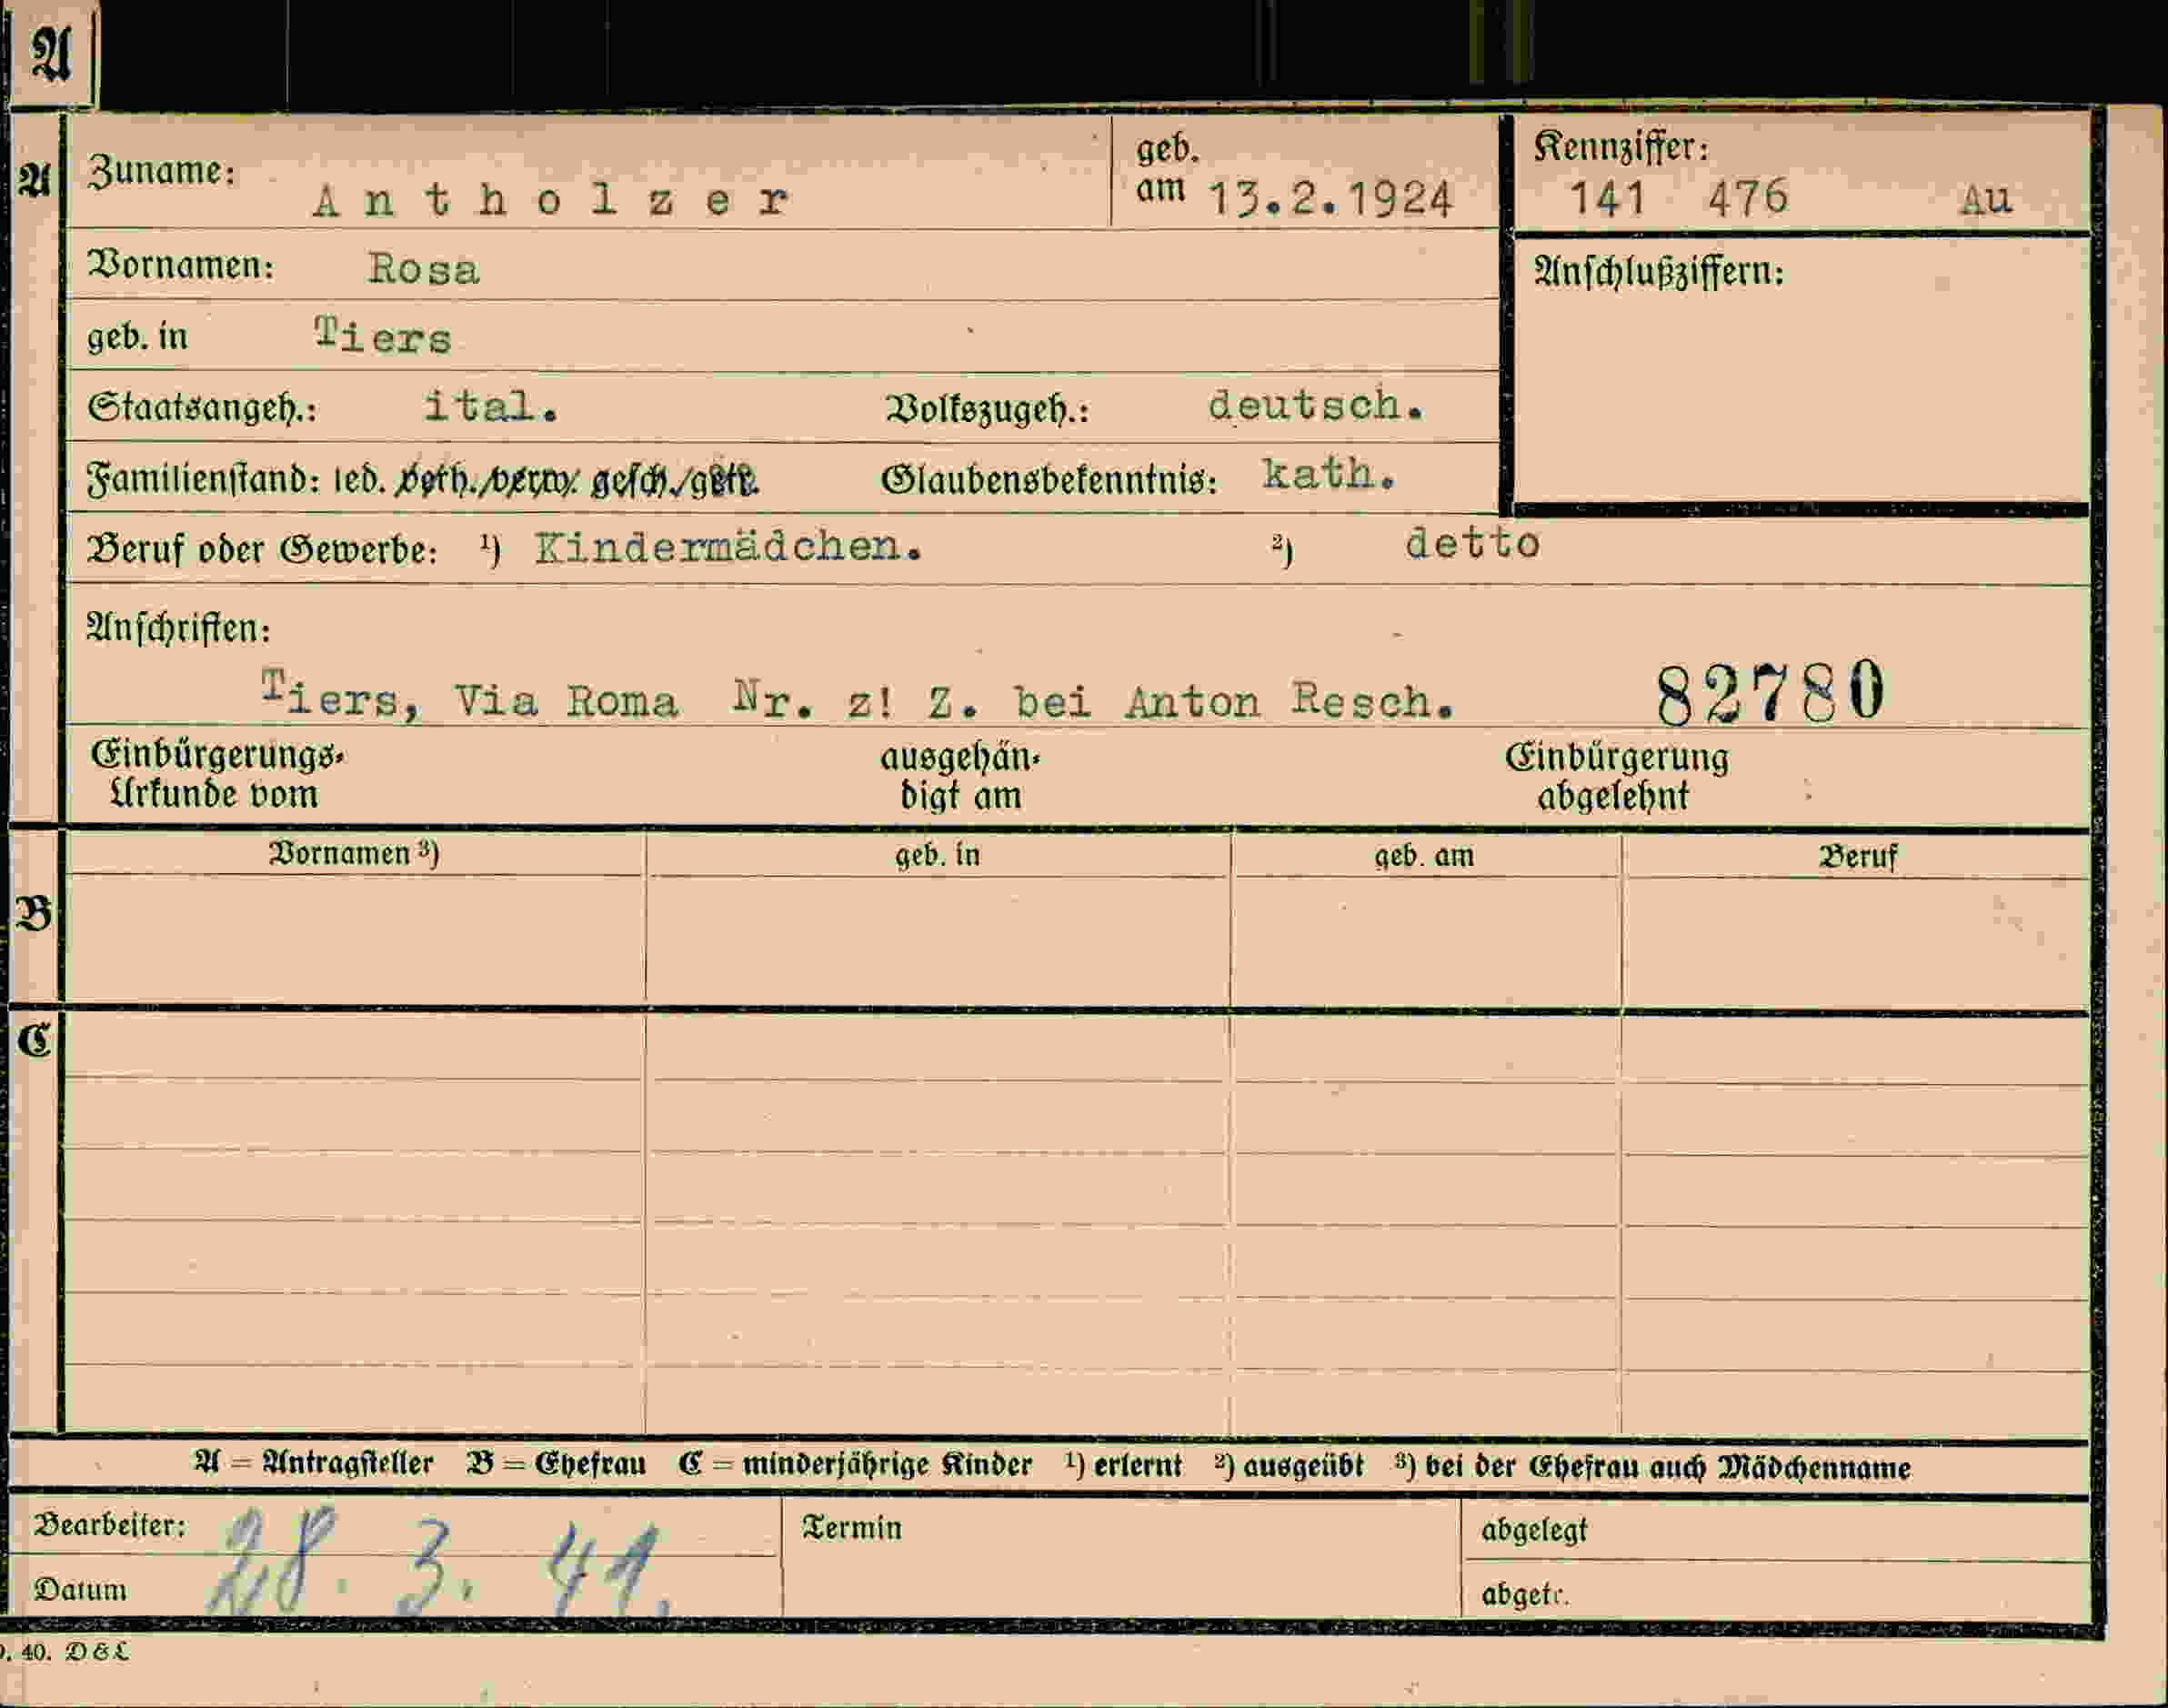 A
A
Zuname: Antholzer geb. am 13.2.1924 Kennziffer: 141 476 Au
Vornamen: Rosa Anschlußziffern:
geb. in Tiers
Staatsangeh.: ital. Volkszugeh.: deutsch.
Familienstand: led. verh./verw. gesch./getr. Glaubensbekenntnis: kath.
Beruf oder Gewerbe: ¹) Kindermädchen. ²) detto
Anschriften:
Tiers, Via Roma Nr. z! Z. bei Anton Resch. 82780
Einbürgerungs- ausgehän- Einbürgerung
Urkunde vom digt am abgelehnt
Vornamen ³) geb. in geb. am Beruf
B
C
A = Antragsteller B = Ehefrau C = minderjährige Kinder ¹) erlernt ²) ausgeübt ³) bei der Ehefrau auch Mädchenname
Bearbeiter: Termin abgelegt
Datum 28. 3. 41. abgetr.
40. D&L